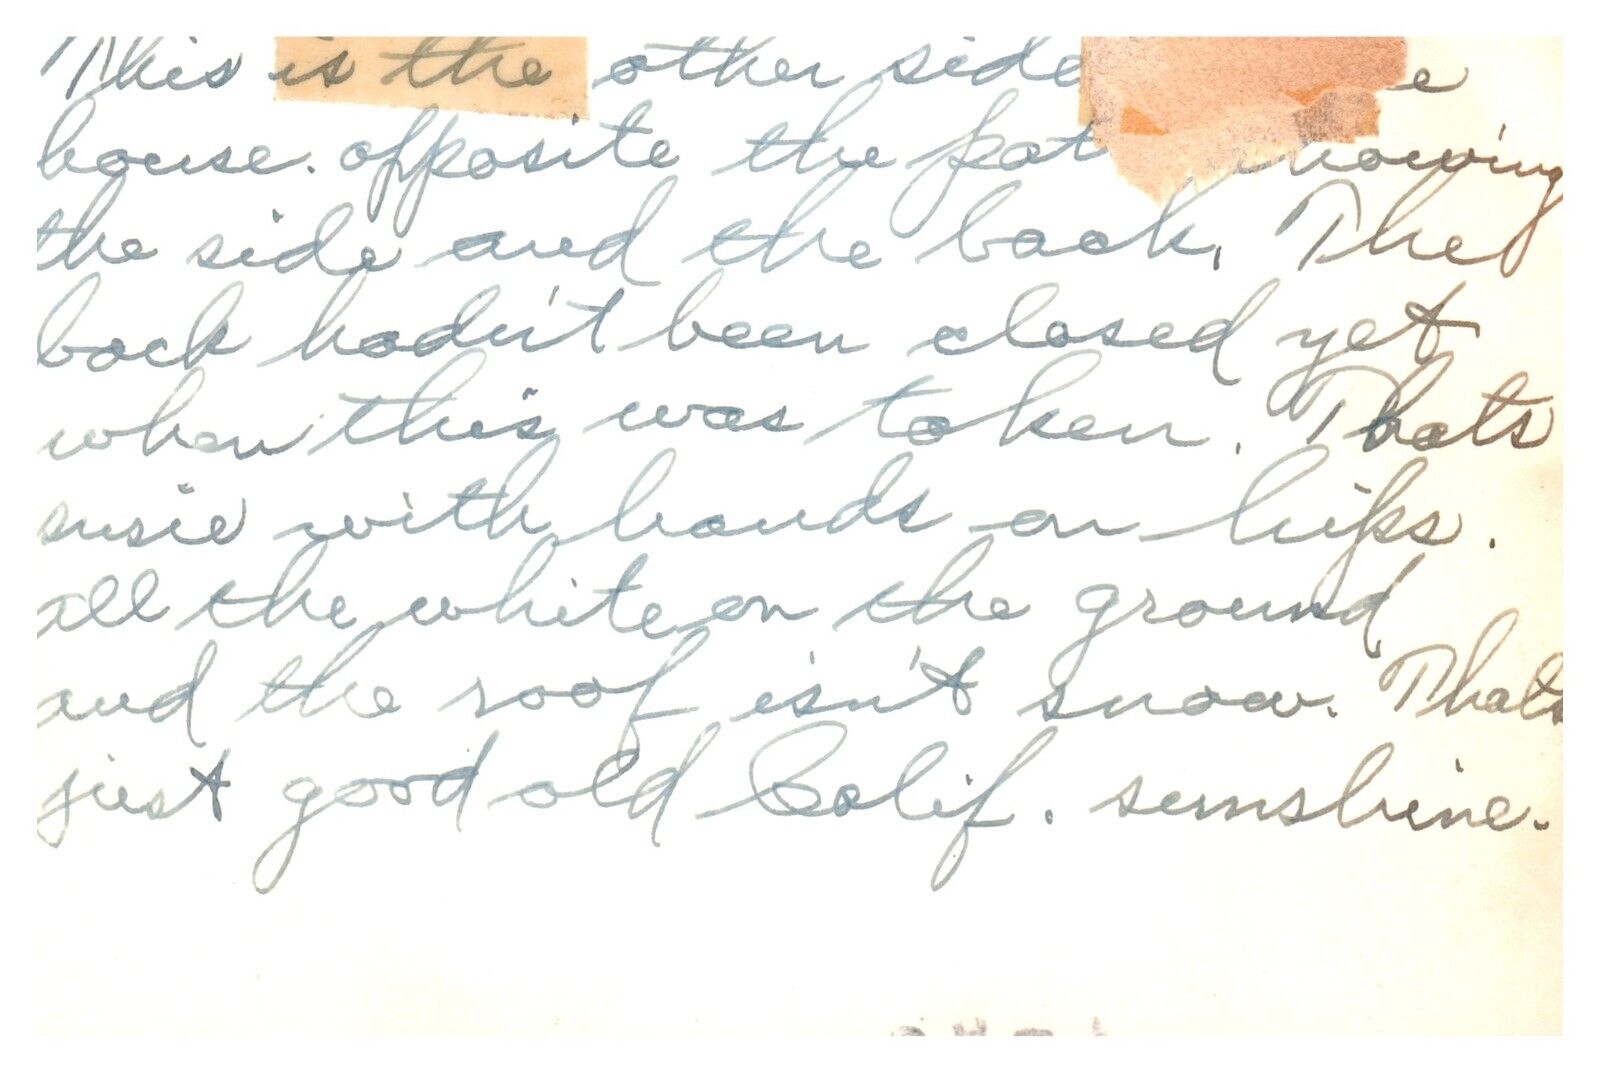 This is the other side e
house. opposite the pat howing
the side and the back. The
back hadn't been closed yet
when this was taken. Thats
susie with hands on hips.
all the white on the ground
and the roof isn't snow. Thats
just good old Calif. sunshine.